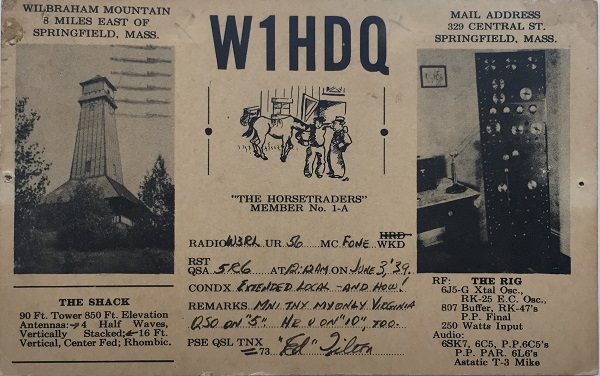 WILBRAHAM MOUNTAIN
8 MILES EAST OF
SPRINGFIELD, MASS.
W1HDQ
MAIL ADDRESS
329 CENTRAL ST.
SPRINGFIELD, MASS.
"THE HORSETRADERS"
MEMBER No. 1-A
RADIO W3RL UR 56 MC FONE HRD WKD
RST
QSA 5 R6 AT 12:12 AM ON JUNE 3, '39.
CONDX EXTENDED LOCAL - AND HOW!
REMARKS MNI TNX MY ONLY VIRGINIA
QSO ON "5". HE U ON "10", TOO.
PSE QSL TNX
73 "Ed" Tilton
THE SHACK
90 Ft. Tower 850 Ft. Elevation
Antennas: 4 Half Waves,
Vertically Stacked; 16 Ft.
Vertical, Center Fed; Rhombic.
RF: THE RIG
6J5-G Xtal Osc.,
RK-25 E.C. Osc.,
807 Buffer, RK-47's
P.P. Final
250 Watts Input
Audio:
6SK7, 6C5, P.P.6C5's
P.P. PAR. 6L6's
Astatic T-3 Mike